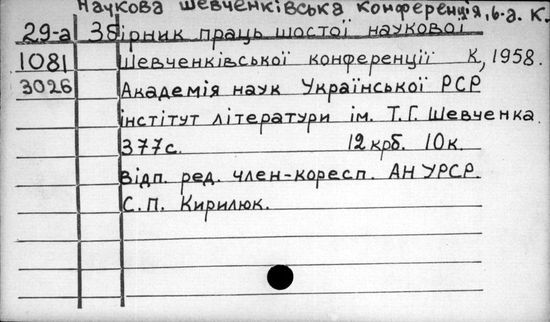 Наукова Шевченківська конференція, 6-а. К.
29-а Збірник праць шостої наукової
1081 Шевченківської конференції К, 1958.
3026 Академія наук Української РСР
інститут літератури ім. Т.Г. Шевченка.
377с. 12 крб. 10к.
Відп. ред. член-кореСп. АН УРСР.
С.П. Кирилюк.